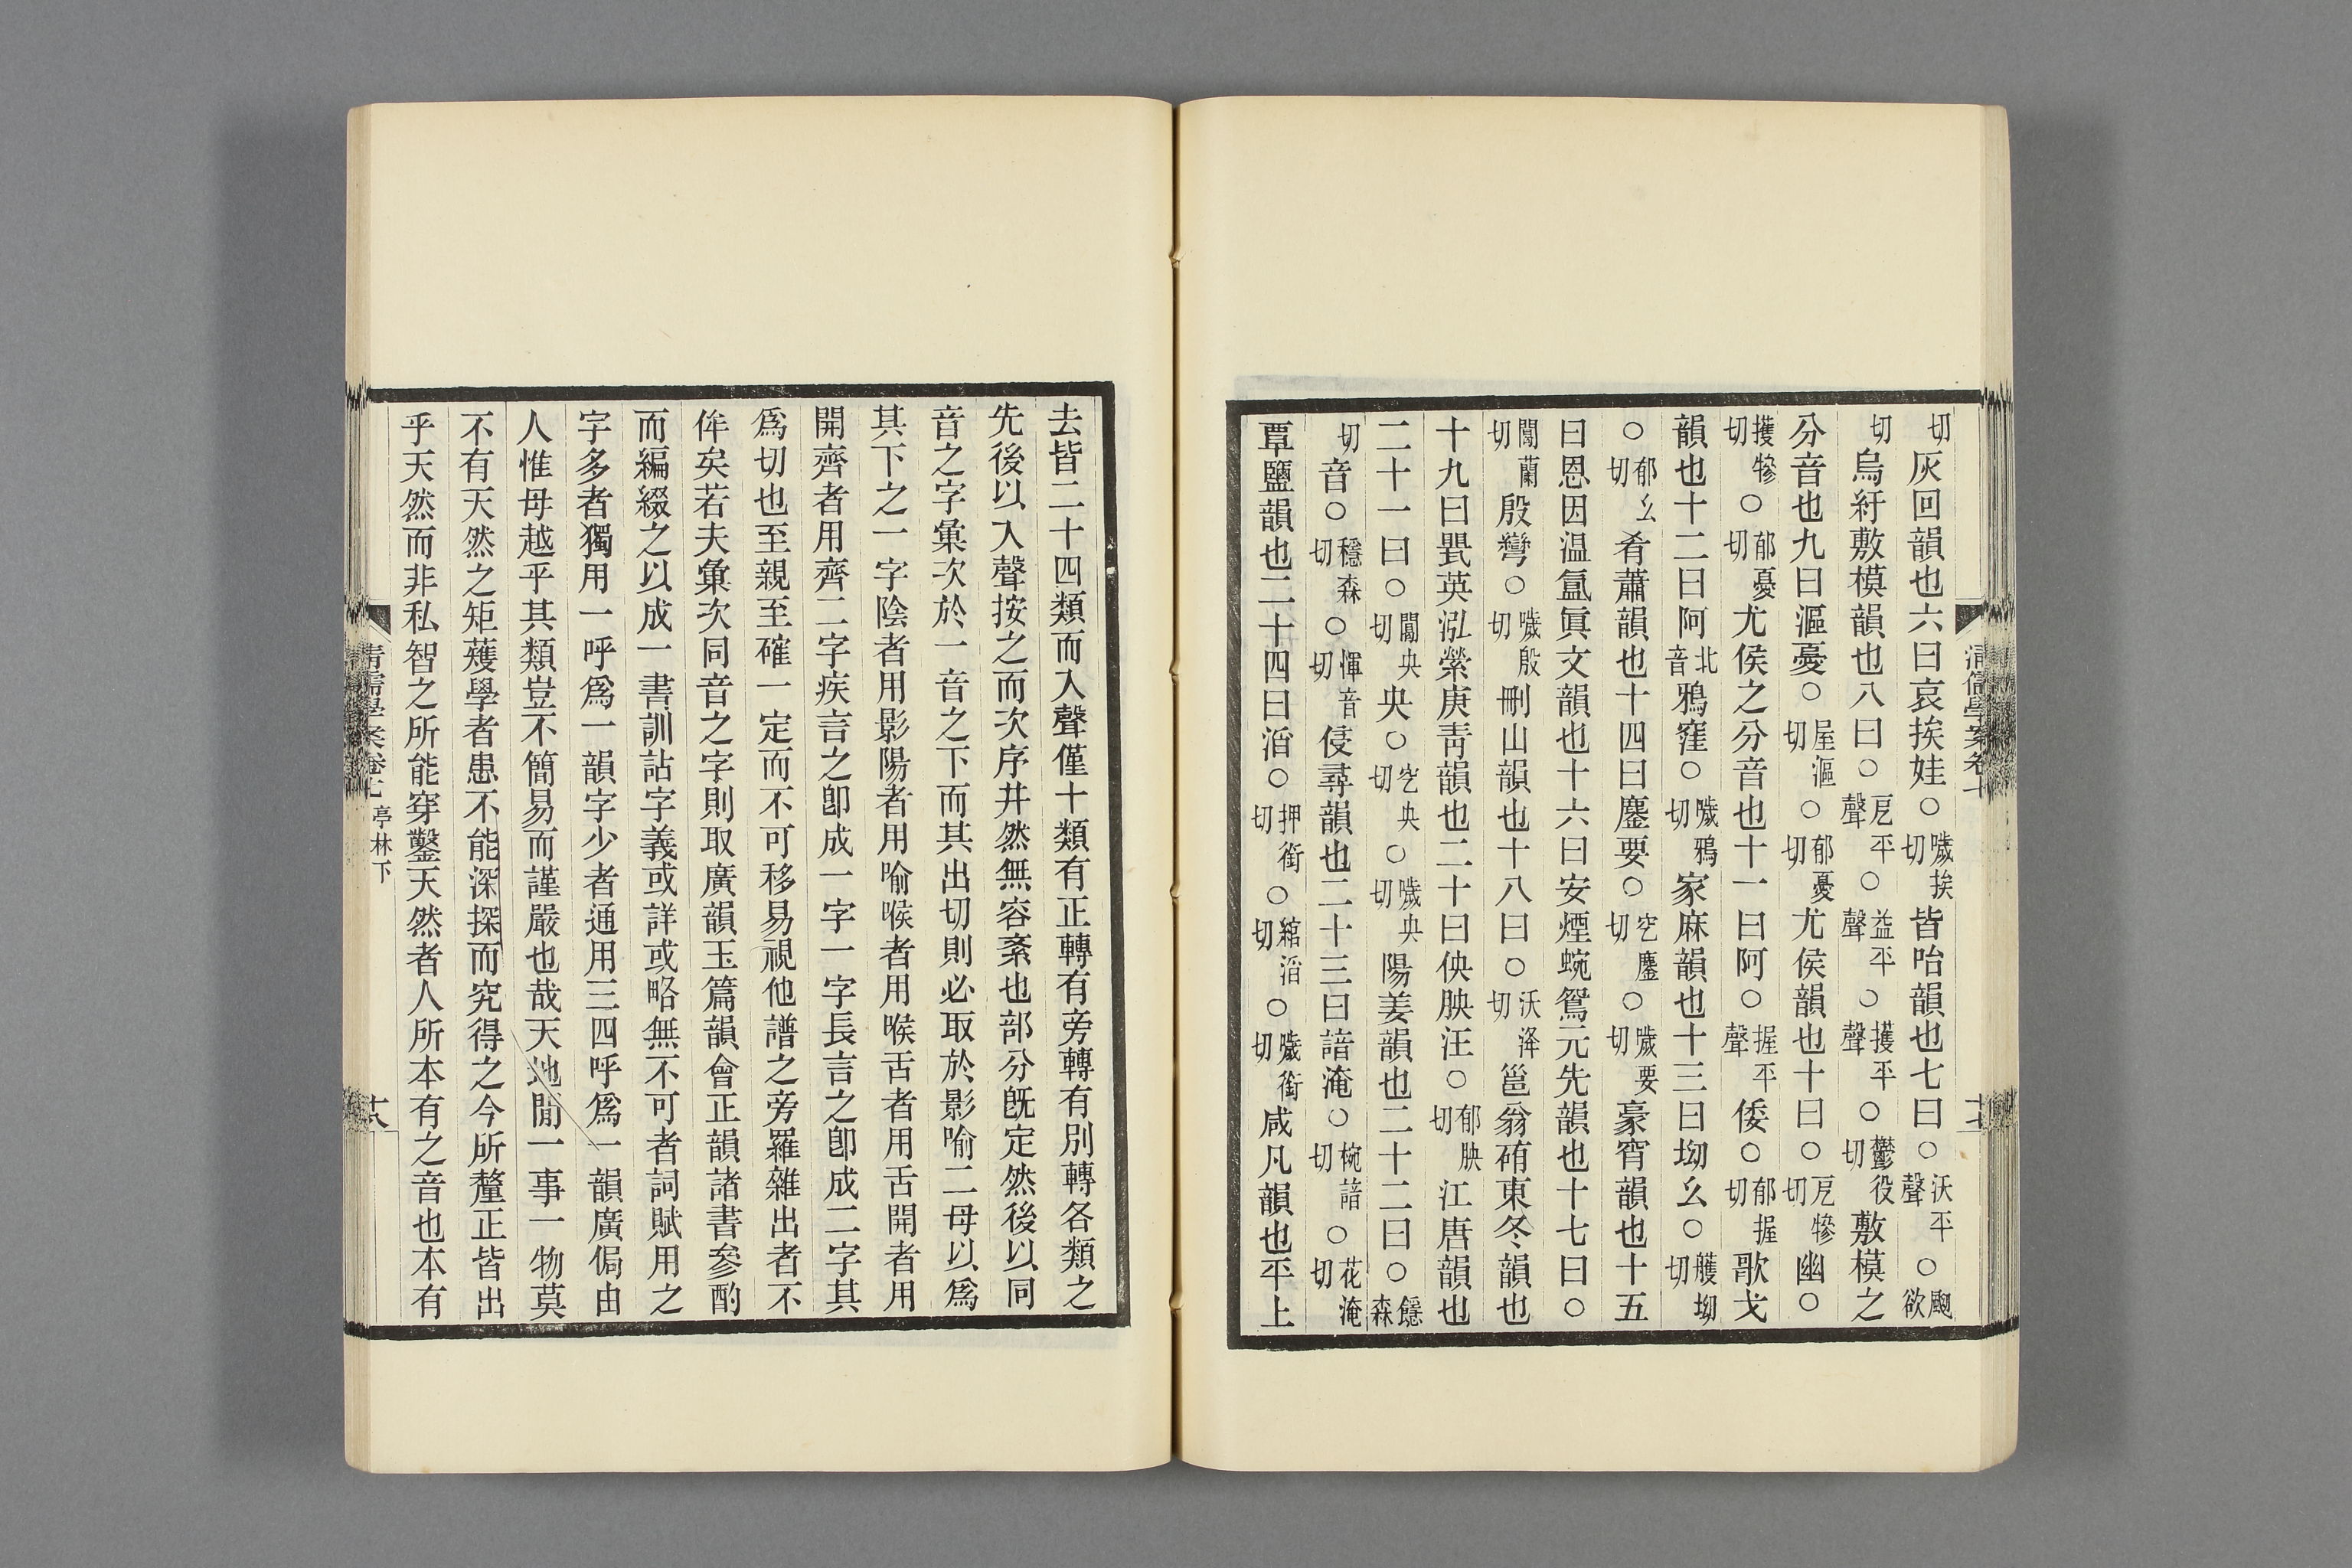 切灰回韻也六曰哀挨娃○噦挨切皆咍韻也七曰○沃平聲○颮欲
切烏紆敷模韻也八曰○戹平聲○益平聲○擭平聲○鬱役切敷模之
分音也九曰漚憂○屋漚切○郁憂切尤侯韻也十曰○戹犙切幽○
擭犙切○郁憂切尤侯之分音也十一曰阿○握平聲倭○郁握切歌戈
韻也十二曰阿北音鴉窪○噦鴉切家麻韻也十三曰坳幺○艧坳切
○郁幺切肴蕭韻也十四曰鏖要○空鏖切○噦要切豪宵韻也十五
曰恩因温氲眞文韻也十六曰安煙蜿鴛元先韻也十七曰○
闟蘭切殷彎○噦殷切刪山韻也十八曰○沃洚切邕翁硧東冬韻也
十九曰甖英泓縈庚靑韻也二十曰佒胦汪○郁胦切江唐韻也
二十一曰○闟央切央○空央○噦央切陽姜韻也二十二曰○䌥森
切音○穩森切○惲音切侵尋韻也二十三曰諳淹○椀諳切○花淹切
覃鹽韻也二十四曰㴠○押銜切○綰㴠切○噦銜切咸凡韻也平上
清儒學案卷七
十七
去皆二十四類而入聲僅十類有正轉有旁轉有別轉各類之
先後以入聲按之而次序井然無容紊也部分旣定然後以同
音之字彙次於一音之下而其出切則必取於影喻二母以爲
其下之一字陰者用影陽者用喻喉者用喉舌者用舌開者用
開齊者用齊二字疾言之卽成一字一字長言之卽成二字其
爲切也至親至確一定而不可移易視他譜之旁羅雜出者不
侔矣若夫彙次同音之字則取廣韻玉篇韻會正韻諸書參酌
而編綴之以成一書訓詁字義或詳或略無不可者詞賦用之
字多者獨用一呼爲一韻字少者通用三四呼爲一韻廣侷由
人惟毋越乎其類豈不簡易而謹嚴也哉天地閒一事一物莫
不有天然之矩蒦學者患不能深探而究得之今所釐正皆出
乎天然而非私智之所能穿鑿天然者人所本有之音也本有
清儒學案卷七 亭林下
十八